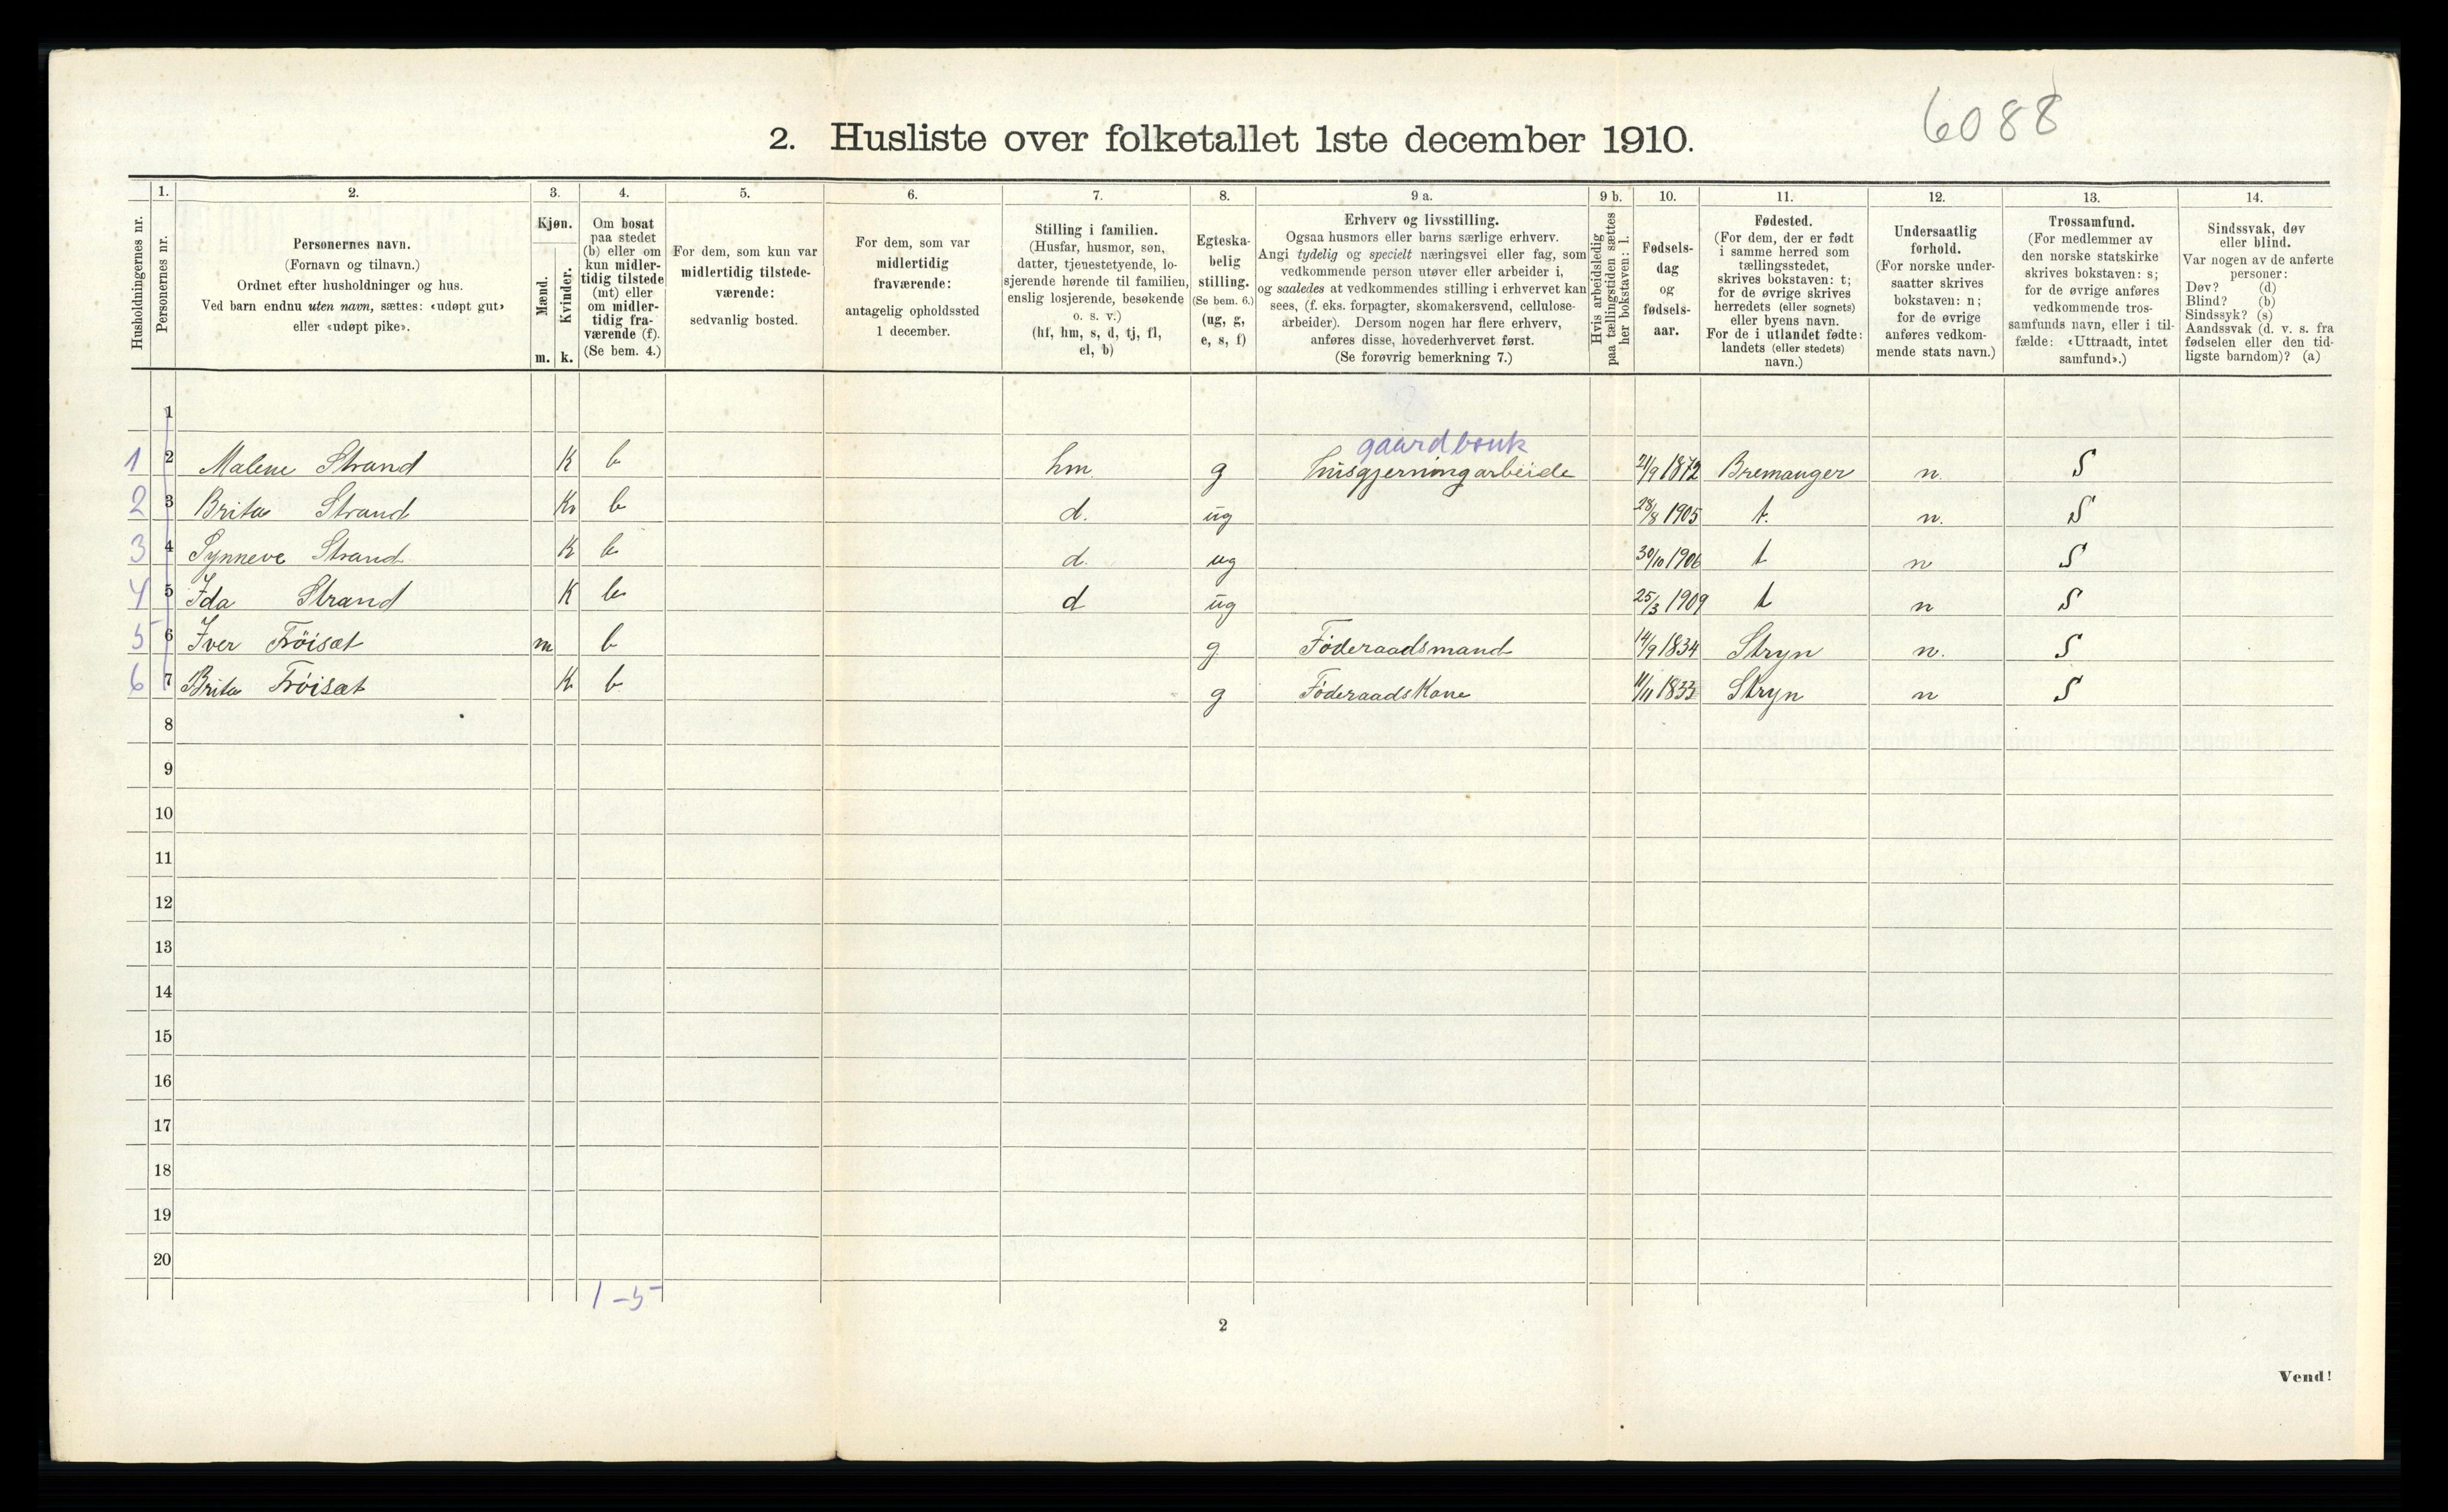 6088
2. Husliste over folketallet 1ste december 1910.
Husholdningernes nr.
1.
Personernes nr.
2.
Personernes navn.
(Fornavn og tilnavn.)
Ordnet efter husholdninger og hus.
Ved barn endnu uten navn, sættes: «udøpt gut»
eller «udøpt pike».
3.
Kjøn.
Mænd.
Kvinder.
m. k.
4.
Om bosat
paa stedet
(b) eller om
kun midler-
tidig tilstede
(mt) eller
om midler-
tidig fra-
værende (f).
(Se bem. 4.)
5.
For dem, som kun var
midlertidig tilstede-
værende:
sedvanlig bosted.
6.
For dem, som var
midlertidig
fraværende:
antagelig opholdssted
1 december.
7.
Stilling i familien.
(Husfar, husmor, søn,
datter, tjenestetyende, lo-
sjerende hørende til familien,
enslig losjerende, besøkende
o. s. v.)
(hf, hm, s, d, tj, fl,
el, b)
8.
Egteska-
belig
stilling.
(Se bem. 6.)
(ug, g,
e, s, f)
9 a.
Erhverv og livsstilling.
Ogsaa husmors eller barns særlige erhverv.
Angi tydelig og specielt næringsvei eller fag, som
vedkommende person utøver eller arbeider i,
og saaledes at vedkommendes stilling i erhvervet kan
sees, (f. eks. forpagter, skomakersvend, cellulose-
arbeider). Dersom nogen har flere erhverv,
anføres disse, hovederhvervet først.
(Se forøvrig bemerkning 7.)
9 b.
Hvis arbeidsledig
paa tællingstiden sættes
her bokstaven: l.
10.
Fødsels-
dag
og
fødsels-
aar.
11.
Fødested.
(For dem, der er født
i samme herred som
tællingsstedet,
skrives bokstaven: t;
for de øvrige skrives
herredets (eller sognets)
eller byens navn.
For de i utlandet fødte:
landets (eller stedets)
navn.)
12.
Undersaatlig
forhold.
(For norske under-
saatter skrives
bokstaven: n;
for de øvrige
anføres vedkom-
mende stats navn.)
13.
Trossamfund.
(For medlemmer av
den norske statskirke
skrives bokstaven: s;
for de øvrige anføres
vedkommende tros-
samfunds navn, eller i til-
fælde: «Uttraadt, intet
samfund».)
14.
Sindssvak, døv
eller blind.
Var nogen av de anførte
personer:
Døv? (d)
Blind? (b)
Sindssyk? (s)
Aandssvak (d. v. s. fra
fødselen eller den tid-
ligste barndom)? (a)
1
gaardbruk
1 2 Malene Strand K b hm. g husgjerningarbeide 21/9 1872 Bremanger n. S
2 3 Brita Strand K b d. ug 28/8 1905 t. n. S
3 4 Synneve Strand K b d. ug 30/10 1906 t n S
4 5 Ida Strand K b d ug 25/3 1909 t n S
5 6 Iver Tröisæt m b g Föderaadsmand 14/9 1834 Stryn n. S
6 7 Brita Tröisæt K b g Föderaadskone 11/11 1833 Stryn n S
8
9
10
11
12
13
14
15
16
17
18
19
20
1 - 5
2
Vend!